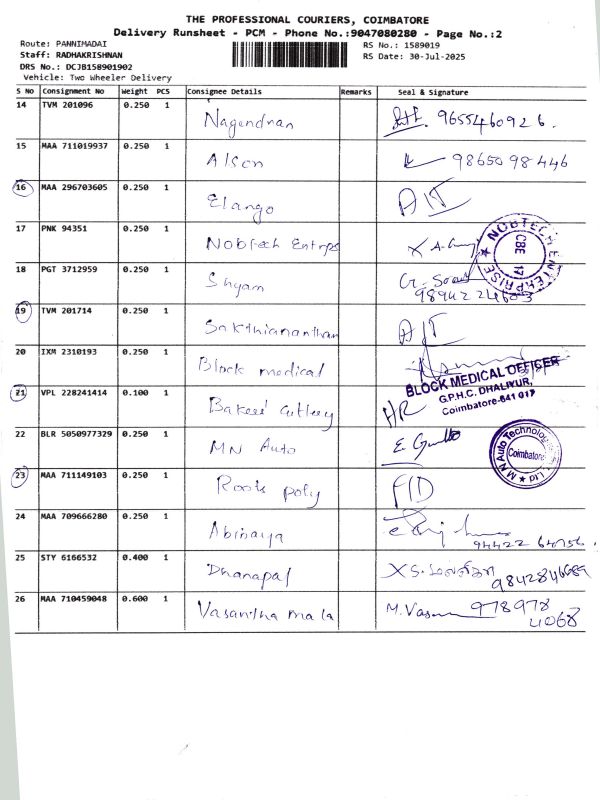 THE PROFESSIONAL COURIERS, COIMBATORE
Delivery Runsheet - PCM - Phone No.:9047080280 - Page No.:2
Route: PANNIMADAI
RS No.: 1589019
Staff: RADHAKRISHNAN
RS Date: 30-Jul-2025
DRS No.: DCJB158901902
Vehicle: Two Wheeler Delivery
S No Consignment No Weight PCS Consignee Details Remarks Seal & Signature
14 TVM 201096 0.250 1 Nagendran 9655460926.
15 MAA 711019937 0.250 1 Alson 9865098446
16 MAA 296703605 0.250 1 Elango
17 PNK 94351 0.250 1 Nobtech Entrps
NOBTECH ENTERPRISE ★ CBE 17
18 PGT 3712959 0.250 1 Shyam
19 TVM 201714 0.250 1 Sakthiananthan
20 IXM 2310193 0.250 1 Block medical
BLOCK MEDICAL OFFICER
G.P.H.C. DHALIYUR,
Coimbatore-641 017
21 VPL 228241414 0.100 1 Bakeri Cutlery
22 BLR 5050977329 0.250 1 MN Auto
M N Auto Technologies Ltd ★ Coimbatore
23 MAA 711149103 0.250 1 Roots poly
24 MAA 709666280 0.250 1 Abinaya
25 STY 6166532 0.400 1 Dhanapal
26 MAA 710459048 0.600 1 Vasantha mala M. Vasan 978978
4068